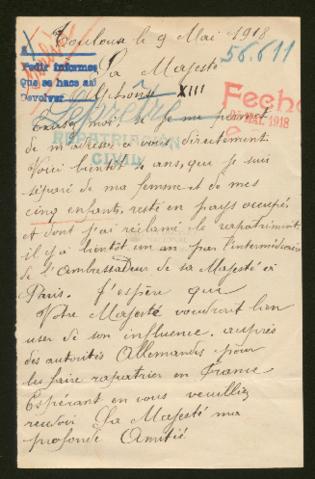 Toulouse le 9 Mai 1918
56.611
Pedir informes
Que se hace así
Devolver
Sa Majesté
Alphonse XIII
Fecha
MAI. 1918
REPATRIACIÓN
CIVIL
Excusé moi si je me permet
de m'adresser à vous directement.
Voici bientôt 4 ans, que je suis
séparé de ma femme et de mes
cinq enfants, resté en pays occupés
et dont j'ai réclamé le rapatriment
il y à bientôt un an par l'intermédiaire
de l'Ambassadeur de sa Majesté à
Paris. J'espère que
Votre Majesté voudrait bien
user de son influence, auprès
des autorités Allemandes pour
les faire rapatrier en France
Espérant en vous veuillez
recevoir Sa Majesté ma
profonde Amitié